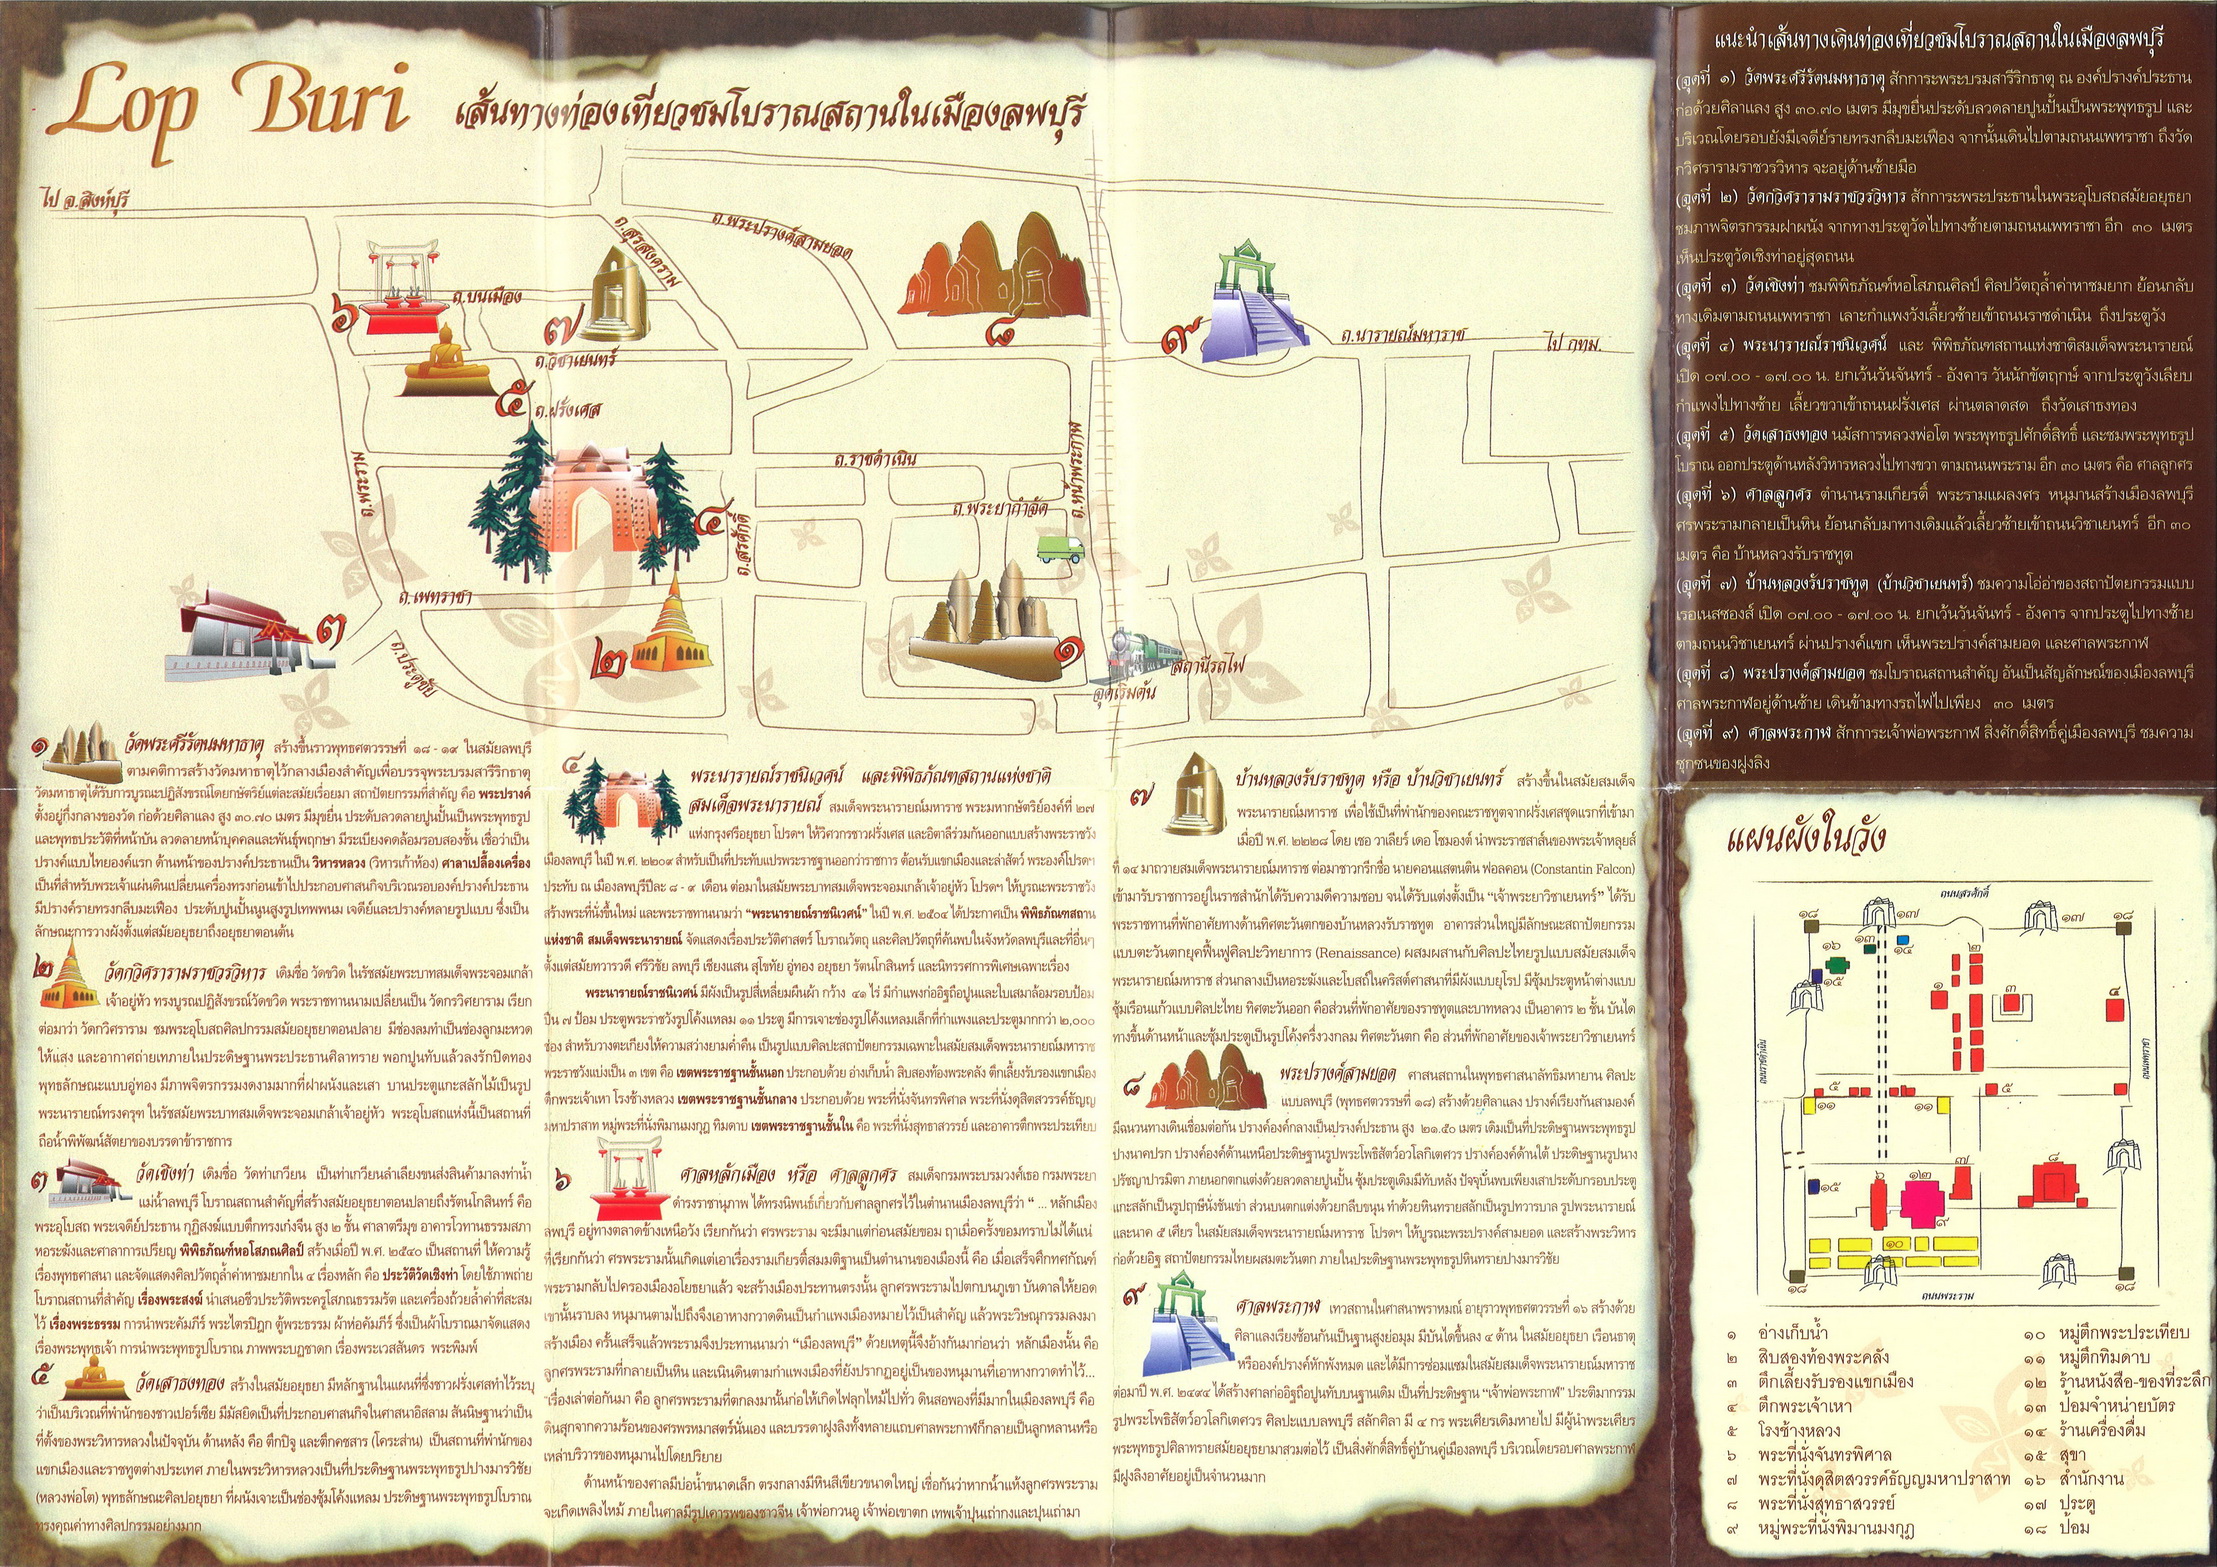 Lop Buri
เส้นทางท่องเที่ยวชมโบราณสถานในเมืองลพบุรี
ไป จ.สิงห์บุรี
ถ.สุรสงคราม
ถ.พระปรางค์สามยอด
ถ.บนเมือง
๖
๗
๘
๙
ถ.นารายณ์มหาราช
ไป กทม.
ถ.วิชาเยนทร์
๕
ถ.ฝรั่งเศส
ถ.พระราม
ถ.ราชดำเนิน
ถ.หน้าพระกาฬ
๔
ถ.สรศักดิ์
ถ.พระยากำจัด
ถ.เพทราชา
๓
๒
๑
ถ.ประตูชัย
สถานีรถไฟ
จุดเริ่มต้น
๑ วัดพระศรีรัตนมหาธาตุ สร้างขึ้นราวพุทธศตวรรษที่ ๑๘ - ๑๙ ในสมัยลพบุรี
ตามคติการสร้างวัดมหาธาตุไว้กลางเมืองสำคัญเพื่อบรรจุพระบรมสารีริกธาตุ
วัดมหาธาตุได้รับการบูรณะปฏิสังขรณ์โดยกษัตริย์แต่ละสมัยเรื่อยมา สถาปัตยกรรมที่สำคัญ คือ พระปรางค์
ตั้งอยู่กึ่งกลางของวัด ก่อด้วยศิลาแลง สูง ๓๐.๗๐ เมตร มีมุขยื่น ประดับลวดลายปูนปั้นเป็นพระพุทธรูป
และพุทธประวัติที่หน้าบัน ลวดลายหน้าบุคคลและพันธุ์พฤกษา มีระเบียงคดล้อมรอบสองชั้น เชื่อว่าเป็น
ปรางค์แบบไทยองค์แรก ด้านหน้าของปรางค์ประธานเป็น วิหารหลวง (วิหารเก้าห้อง) ศาลาเปลื้องเครื่อง
เป็นที่สำหรับพระเจ้าแผ่นดินเปลี่ยนเครื่องทรงก่อนเข้าไปประกอบศาสนกิจบริเวณรอบองค์ปรางค์ประธาน
มีปรางค์รายทรงกลีบมะเฟือง ประดับปูนปั้นนูนสูงรูปเทพพนม เจดีย์และปรางค์หลายรูปแบบ ซึ่งเป็น
ลักษณะการวางผังตั้งแต่สมัยอยุธยาถึงอยุธยาตอนต้น
๒ วัดกวิศรารามราชวรวิหาร เดิมชื่อ วัดขวิด ในรัชสมัยพระบาทสมเด็จพระจอมเกล้า
เจ้าอยู่หัว ทรงบูรณปฏิสังขรณ์วัดขวิด พระราชทานนามเปลี่ยนเป็น วัดกรวิศยาราม เรียก
ต่อมาว่า วัดกวิศราราม ชมพระอุโบสถศิลปกรรมสมัยอยุธยาตอนปลาย มีช่องลมทำเป็นช่องลูกมะหวด
ให้แสง และอากาศถ่ายเทภายในประดิษฐานพระประธานศิลาทราย พอกปูนทับแล้วลงรักปิดทอง
พุทธลักษณะแบบอู่ทอง มีภาพจิตรกรรมงดงามมากที่ฝาผนังและเสา บานประตูแกะสลักไม้เป็นรูป
พระนารายณ์ทรงครุฑ ในรัชสมัยพระบาทสมเด็จพระจอมเกล้าเจ้าอยู่หัว พระอุโบสถแห่งนี้เป็นสถานที่
ถือน้ำพิพัฒน์สัตยาของบรรดาข้าราชการ
๓ วัดเชิงท่า เดิมชื่อ วัดท่าเกวียน เป็นท่าเกวียนลำเลียงขนส่งสินค้ามาลงท่าน้ำ
แม่น้ำลพบุรี โบราณสถานสำคัญที่สร้างสมัยอยุธยาตอนปลายถึงรัตนโกสินทร์ คือ
พระอุโบสถ พระเจดีย์ประธาน กุฏิสงฆ์แบบตึกทรงเก๋งจีน สูง ๒ ชั้น ศาลาตรีมุข อาคารโวทานธรรมสภา
หอระฆังและศาลาการเปรียญ พิพิธภัณฑ์หอโสภณศิลป์ สร้างเมื่อปี พ.ศ. ๒๕๔๐ เป็นสถานที่ ให้ความรู้
เรื่องพุทธศาสนา และจัดแสดงศิลปวัตถุล้ำค่าหาชมยากใน ๔ เรื่องหลัก คือ ประวัติวัดเชิงท่า โดยใช้ภาพถ่าย
โบราณสถานที่สำคัญ เรื่องพระสงฆ์ นำเสนอชีวประวัติพระครูโสภณธรรมรัต และเครื่องถ้วยล้ำค่าที่สะสม
ไว้ เรื่องพระธรรม การนำพระคัมภีร์ พระไตรปิฎก ตู้พระธรรม ผ้าห่อคัมภีร์ ซึ่งเป็นผ้าโบราณมาจัดแสดง
เรื่องพระพุทธเจ้า การนำพระพุทธรูปโบราณ ภาพพระบฏชาดก เรื่องพระเวสสันดร พระพิมพ์
๕ วัดเสาธงทอง สร้างในสมัยอยุธยา มีหลักฐานในแผนที่ซึ่งชาวฝรั่งเศสทำไว้ระบุ
ว่าเป็นบริเวณที่พำนักของชาวเปอร์เซีย มีมัสยิดเป็นที่ประกอบศาสนกิจในศาสนาอิสลาม สันนิษฐานว่าเป็น
ที่ตั้งของพระวิหารหลวงในปัจจุบัน ด้านหลัง คือ ตึกปิจู และตึกคชสาร (โคระส่าน) เป็นสถานที่พำนักของ
แขกเมืองและราชทูตต่างประเทศ ภายในพระวิหารหลวงเป็นที่ประดิษฐานพระพุทธรูปปางมารวิชัย
(หลวงพ่อโต) พุทธลักษณะศิลปอยุธยา ที่ผนังเจาะเป็นช่องซุ้มโค้งแหลม ประดิษฐานพระพุทธรูปโบราณ
ทรงคุณค่าทางศิลปกรรมอย่างมาก
๔ พระนารายณ์ราชนิเวศน์ และพิพิธภัณฑสถานแห่งชาติ
สมเด็จพระนารายณ์ สมเด็จพระนารายณ์มหาราช พระมหากษัตริย์องค์ที่ ๒๗
แห่งกรุงศรีอยุธยา โปรดฯ ให้วิศวกรชาวฝรั่งเศส และอิตาลีร่วมกันออกแบบสร้างพระราชวัง
เมืองลพบุรี ในปี พ.ศ. ๒๒๐๙ สำหรับเป็นที่ประทับแปรพระราชฐานออกว่าราชการ ต้อนรับแขกเมืองและล่าสัตว์ พระองค์โปรดฯ
ประทับ ณ เมืองลพบุรีปีละ ๘ - ๙ เดือน ต่อมาในสมัยพระบาทสมเด็จพระจอมเกล้าเจ้าอยู่หัว โปรดฯ ให้บูรณะพระราชวัง
สร้างพระที่นั่งขึ้นใหม่ และพระราชทานนามว่า “พระนารายณ์ราชนิเวศน์” ในปี พ.ศ. ๒๕๐๔ ได้ประกาศเป็น พิพิธภัณฑสถาน
แห่งชาติ สมเด็จพระนารายณ์ จัดแสดงเรื่องประวัติศาสตร์ โบราณวัตถุ และศิลปวัตถุที่ค้นพบในจังหวัดลพบุรีและที่อื่นๆ
ตั้งแต่สมัยทวารวดี ศรีวิชัย ลพบุรี เชียงแสน สุโขทัย อู่ทอง อยุธยา รัตนโกสินทร์ และนิทรรศการพิเศษเฉพาะเรื่อง
พระนารายณ์ราชนิเวศน์ มีผังเป็นรูปสี่เหลี่ยมผืนผ้า กว้าง ๔๑ ไร่ มีกำแพงก่ออิฐถือปูนและใบเสมาล้อมรอบป้อม
ปืน ๗ ป้อม ประตูพระราชวังรูปโค้งแหลม ๑๑ ประตู มีการเจาะช่องรูปโค้งแหลมเล็กที่กำแพงและประตูมากกว่า ๒,๐๐๐
ช่อง สำหรับวางตะเกียงให้ความสว่างยามค่ำคืน เป็นรูปแบบศิลปะสถาปัตยกรรมเฉพาะในสมัยสมเด็จพระนารายณ์มหาราช
พระราชวังแบ่งเป็น ๓ เขต คือ เขตพระราชฐานชั้นนอก ประกอบด้วย อ่างเก็บน้ำ สิบสองท้องพระคลัง ตึกเลี้ยงรับรองแขกเมือง
ตึกพระเจ้าเหา โรงช้างหลวง เขตพระราชฐานชั้นกลาง ประกอบด้วย พระที่นั่งจันทรพิศาล พระที่นั่งดุสิตสวรรค์ธัญญ
มหาปราสาท หมู่พระที่นั่งพิมานมงกุฎ ทิมดาบ เขตพระราชฐานชั้นใน คือ พระที่นั่งสุทธาสวรรย์ และอาคารตึกพระประเทียบ
๖ ศาลหลักเมือง หรือ ศาลลูกศร สมเด็จกรมพระบรมวงศ์เธอ กรมพระยา
ดำรงราชานุภาพ ได้ทรงนิพนธ์เกี่ยวกับศาลลูกศรไว้ในตำนานเมืองลพบุรีว่า “ ... หลักเมือง
ลพบุรี อยู่ทางตลาดข้างเหนือวัง เรียกกันว่า ศรพระราม จะมีมาแต่ก่อนสมัยขอม ฤาเมื่อครั้งขอมทราบไม่ได้แน่
ที่เรียกกันว่า ศรพระรามนั้นเกิดแต่เอาเรื่องรามเกียรติ์สมมติฐานเป็นตำนานของเมืองนี้ คือ เมื่อเสร็จศึกทศกัณฑ์
พระรามกลับไปครองเมืองอโยธยาแล้ว จะสร้างเมืองประทานตรงนั้น ลูกศรพระรามไปตกบนภูเขา บันดาลให้ยอด
เขานั้นราบลง หนุมานตามไปถึงจึงเอาหางกวาดดินเป็นกำแพงเมืองหมายไว้เป็นสำคัญ แล้วพระวิษณุกรรมลงมา
สร้างเมือง ครั้นเสร็จแล้วพระรามจึงประทานนามว่า “เมืองลพบุรี” ด้วยเหตุนี้จึงอ้างกันมาก่อนว่า หลักเมืองนั้น คือ
ลูกศรพระรามที่กลายเป็นหิน และเนินดินตามกำแพงเมืองที่ยังปรากฏอยู่เป็นของหนุมานที่เอาหางกวาดทำไว้...
”เรื่องเล่าต่อกันมา คือ ลูกศรพระรามที่ตกลงมานั้นก่อให้เกิดไฟลุกไหม้ไปทั่ว ดินสอพองที่มีมากในเมืองลพบุรี คือ
ดินสุกจากความร้อนของศรพรหมาสตร์นั่นเอง และบรรดาฝูงลิงทั้งหลายแถบศาลพระกาฬก็กลายเป็นลูกหลานหรือ
เหล่าบริวารของหนุมานไปโดยปริยาย
ด้านหน้าของศาลมีบ่อน้ำขนาดเล็ก ตรงกลางมีหินสีเขียวขนาดใหญ่ เชื่อกันว่าหากน้ำแห้งลูกศรพระราม
จะเกิดเพลิงไหม้ ภายในศาลมีรูปเคารพของชาวจีน เจ้าพ่อกวนอู เจ้าพ่อเขาตก เทพเจ้าปุนเถ่ากงและปุนเถ่ามา
๗ บ้านหลวงรับราชทูต หรือ บ้านวิชาเยนทร์ สร้างขึ้นในสมัยสมเด็จ
พระนารายณ์มหาราช เพื่อใช้เป็นที่พำนักของคณะราชทูตจากฝรั่งเศสชุดแรกที่เข้ามา
เมื่อปี พ.ศ. ๒๒๒๘ โดย เชอ วาเลียร์ เดอ โชมองต์ นำพระราชสาส์นของพระเจ้าหลุยส์
ที่ ๑๔ มาถวายสมเด็จพระนารายณ์มหาราช ต่อมาชาวกรีกชื่อ นายคอนแสตนติน ฟอลคอน (Constantin Falcon)
เข้ามารับราชการอยู่ในราชสำนักได้รับความดีความชอบ จนได้รับแต่งตั้งเป็น “เจ้าพระยาวิชาเยนทร์” ได้รับ
พระราชทานที่พักอาศัยทางด้านทิศตะวันตกของบ้านหลวงรับราชทูต อาคารส่วนใหญ่มีลักษณะสถาปัตยกรรม
แบบตะวันตกยุคฟื้นฟูศิลปะวิทยาการ (Renaissance) ผสมผสานกับศิลปะไทยรูปแบบสมัยสมเด็จ
พระนารายณ์มหาราช ส่วนกลางเป็นหอระฆังและโบสถ์ในคริสต์ศาสนาที่มีผังแบบยุโรป มีซุ้มประตูหน้าต่างแบบ
ซุ้มเรือนแก้วแบบศิลปะไทย ทิศตะวันออก คือส่วนที่พักอาศัยของราชทูตและบาทหลวง เป็นอาคาร ๒ ชั้น บันได
ทางขึ้นด้านหน้าและซุ้มประตูเป็นรูปโค้งครึ่งวงกลม ทิศตะวันตก คือ ส่วนที่พักอาศัยของเจ้าพระยาวิชาเยนทร์
๘ พระปรางค์สามยอด ศาสนสถานในพุทธศาสนาลัทธิมหายาน ศิลปะ
แบบลพบุรี (พุทธศตวรรษที่ ๑๘) สร้างด้วยศิลาแลง ปรางค์เรียงกันสามองค์
มีฉนวนทางเดินเชื่อมต่อกัน ปรางค์องค์กลางเป็นปรางค์ประธาน สูง ๒๑.๕๐ เมตร เดิมเป็นที่ประดิษฐานพระพุทธรูป
ปางนาคปรก ปรางค์องค์ด้านเหนือประดิษฐานรูปพระโพธิสัตว์อวโลกิเตศวร ปรางค์องค์ด้านใต้ ประดิษฐานรูปนาง
ปรัชญาปารมิตา ภายนอกตกแต่งด้วยลวดลายปูนปั้น ซุ้มประตูเดิมมีทับหลัง ปัจจุบันพบเพียงเสาประดับกรอบประตู
แกะสลักเป็นรูปฤาษีนั่งชันเข่า ส่วนบนตกแต่งด้วยกลีบขนุน ทำด้วยหินทรายสลักเป็นรูปทวารบาล รูปพระนารายณ์
และนาค ๕ เศียร ในสมัยสมเด็จพระนารายณ์มหาราช โปรดฯ ให้บูรณะพระปรางค์สามยอด และสร้างพระวิหาร
ก่อด้วยอิฐ สถาปัตยกรรมไทยผสมตะวันตก ภายในประดิษฐานพระพุทธรูปหินทรายปางมารวิชัย
๙ ศาลพระกาฬ เทวสถานในศาสนาพราหมณ์ อายุราวพุทธศตวรรษที่ ๑๖ สร้างด้วย
ศิลาแลงเรียงซ้อนกันเป็นฐานสูงย่อมุม มีบันไดขึ้นลง ๔ ด้าน ในสมัยอยุธยา เรือนธาตุ
หรือองค์ปรางค์หักพังหมด และได้มีการซ่อมแซมในสมัยสมเด็จพระนารายณ์มหาราช
ต่อมาปี พ.ศ. ๒๔๙๔ ได้สร้างศาลก่ออิฐถือปูนทับบนฐานเดิม เป็นที่ประดิษฐาน “เจ้าพ่อพระกาฬ” ประติมากรรม
รูปพระโพธิสัตว์อวโลกิเตศวร ศิลปะแบบลพบุรี สลักศิลา มี ๔ กร พระเศียรเดิมหายไป มีผู้นำพระเศียร
พระพุทธรูปศิลาทรายสมัยอยุธยามาสวมต่อไว้ เป็นสิ่งศักดิ์สิทธิ์คู่บ้านคู่เมืองลพบุรี บริเวณโดยรอบศาลพระกาฬ
มีฝูงลิงอาศัยอยู่เป็นจำนวนมาก
แนะนำเส้นทางเดินท่องเที่ยวชมโบราณสถานในเมืองลพบุรี
(จุดที่ ๑) วัดพระศรีรัตนมหาธาตุ สักการะพระบรมสารีริกธาตุ ณ องค์ปรางค์ประธาน
ก่อด้วยศิลาแลง สูง ๓๐.๗๐ เมตร มีมุขยื่นประดับลวดลายปูนปั้นเป็นพระพุทธรูป และ
บริเวณโดยรอบยังมีเจดีย์รายทรงกลีบมะเฟือง จากนั้นเดินไปตามถนนเพทราชา ถึงวัด
กวิศรารามราชวรวิหาร จะอยู่ด้านซ้ายมือ
(จุดที่ ๒) วัดกวิศรารามราชวรวิหาร สักการะพระประธานในพระอุโบสถสมัยอยุธยา
ชมภาพจิตรกรรมฝาผนัง จากทางประตูวัดไปทางซ้ายตามถนนเพทราชา อีก ๓๐ เมตร
เห็นประตูวัดเชิงท่าอยู่สุดถนน
(จุดที่ ๓) วัดเชิงท่า ชมพิพิธภัณฑ์หอโสภณศิลป์ ศิลปวัตถุล้ำค่าหาชมยาก ย้อนกลับ
ทางเดิมตามถนนเพทราชา เลาะกำแพงวังเลี้ยวซ้ายเข้าถนนราชดำเนิน ถึงประตูวัง
(จุดที่ ๔) พระนารายณ์ราชนิเวศน์ และ พิพิธภัณฑสถานแห่งชาติสมเด็จพระนารายณ์
เปิด ๐๗.๐๐ - ๑๗.๐๐ น. ยกเว้นวันจันทร์ - อังคาร วันนักขัตฤกษ์ จากประตูวังเลียบ
กำแพงไปทางซ้าย เลี้ยวขวาเข้าถนนฝรั่งเศส ผ่านตลาดสด ถึงวัดเสาธงทอง
(จุดที่ ๕) วัดเสาธงทอง นมัสการหลวงพ่อโต พระพุทธรูปศักดิ์สิทธิ์ และชมพระพุทธรูป
โบราณ ออกประตูด้านหลังวิหารหลวงไปทางขวา ตามถนนพระราม อีก ๓๐ เมตร คือ ศาลลูกศร
(จุดที่ ๖) ศาลลูกศร ตำนานรามเกียรติ์ พระรามแผลงศร หนุมานสร้างเมืองลพบุรี
ศรพระรามกลายเป็นหิน ย้อนกลับมาทางเดิมแล้วเลี้ยวซ้ายเข้าถนนวิชาเยนทร์ อีก ๓๐
เมตร คือ บ้านหลวงรับราชทูต
(จุดที่ ๗) บ้านหลวงรับราชทูต (บ้านวิชาเยนทร์) ชมความโอ่อ่าของสถาปัตยกรรมแบบ
เรอเนสซองส์ เปิด ๐๗.๐๐ - ๑๗.๐๐ น. ยกเว้นวันจันทร์ - อังคาร จากประตูไปทางซ้าย
ตามถนนวิชาเยนทร์ ผ่านปรางค์แขก เห็นพระปรางค์สามยอด และศาลพระกาฬ
(จุดที่ ๘) พระปรางค์สามยอด ชมโบราณสถานสำคัญ อันเป็นสัญลักษณ์ของเมืองลพบุรี
ศาลพระกาฬอยู่ด้านซ้าย เดินข้ามทางรถไฟไปเพียง ๓๐ เมตร
(จุดที่ ๙) ศาลพระกาฬ สักการะเจ้าพ่อพระกาฬ สิ่งศักดิ์สิทธิ์คู่เมืองลพบุรี ชมความ
ซุกซนของฝูงลิง
แผนผังในวัง
ถนนสรศักดิ์
๑๘ ๑๗ ๑๗ ๑๘
๑๖ ๑๓ ๑๔ ๒
๑๕
๑ ๓ ๔
ถนนราชดำเนิน
ถนนเพทราชา
๕ ๕
๑๑ ๑๑
๑๕ ๖ ๑๒ ๗ ๘
๙
๑๐
๑๘ ๑๘
ถนนพระราม
๑ อ่างเก็บน้ำ
๒ สิบสองท้องพระคลัง
๓ ตึกเลี้ยงรับรองแขกเมือง
๔ ตึกพระเจ้าเหา
๕ โรงช้างหลวง
๖ พระที่นั่งจันทรพิศาล
๗ พระที่นั่งดุสิตสวรรค์ธัญญมหาปราสาท
๘ พระที่นั่งสุทธาสวรรย์
๙ หมู่พระที่นั่งพิมานมงกุฎ
๑๐ หมู่ตึกพระประเทียบ
๑๑ หมู่ตึกทิมดาบ
๑๒ ร้านหนังสือ-ของที่ระลึก
๑๓ ป้อมจำหน่ายบัตร
๑๔ ร้านเครื่องดื่ม
๑๕ สุขา
๑๖ สำนักงาน
๑๗ ประตู
๑๘ ป้อม